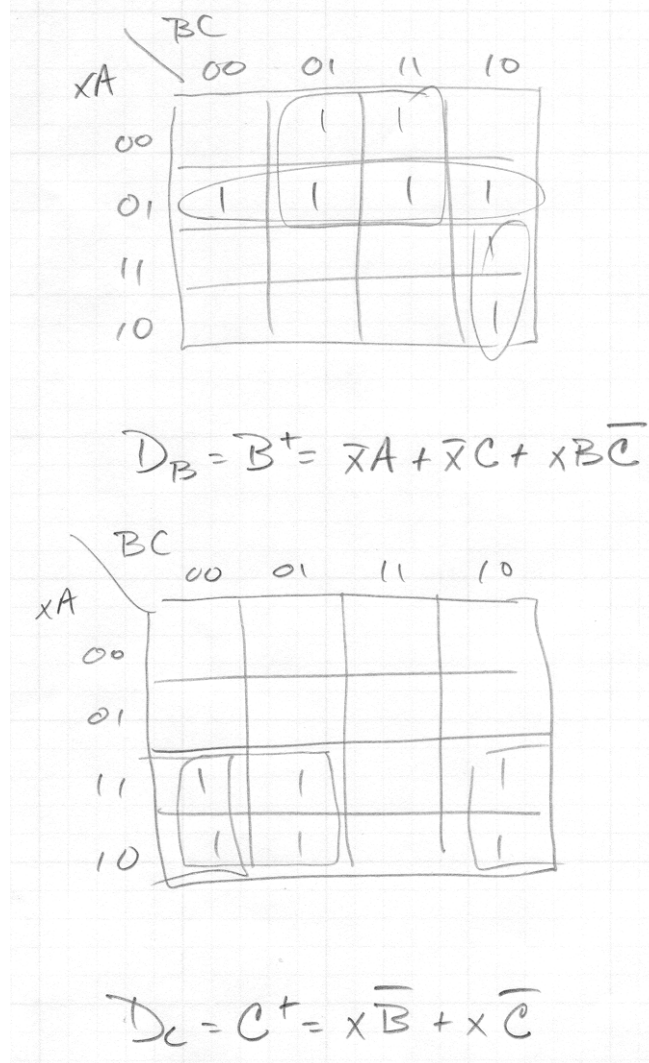 BC
00 01 11 10
xA
00 1 1
01 1 1 1 1
11 1
10 1
D_B = B⁺ = x̄A + x̄C + xBC̅
BC
00 01 11 10
xA
00
01
11 1 1 1
10 1 1 1
D_C = C⁺ = xB̅ + xC̅